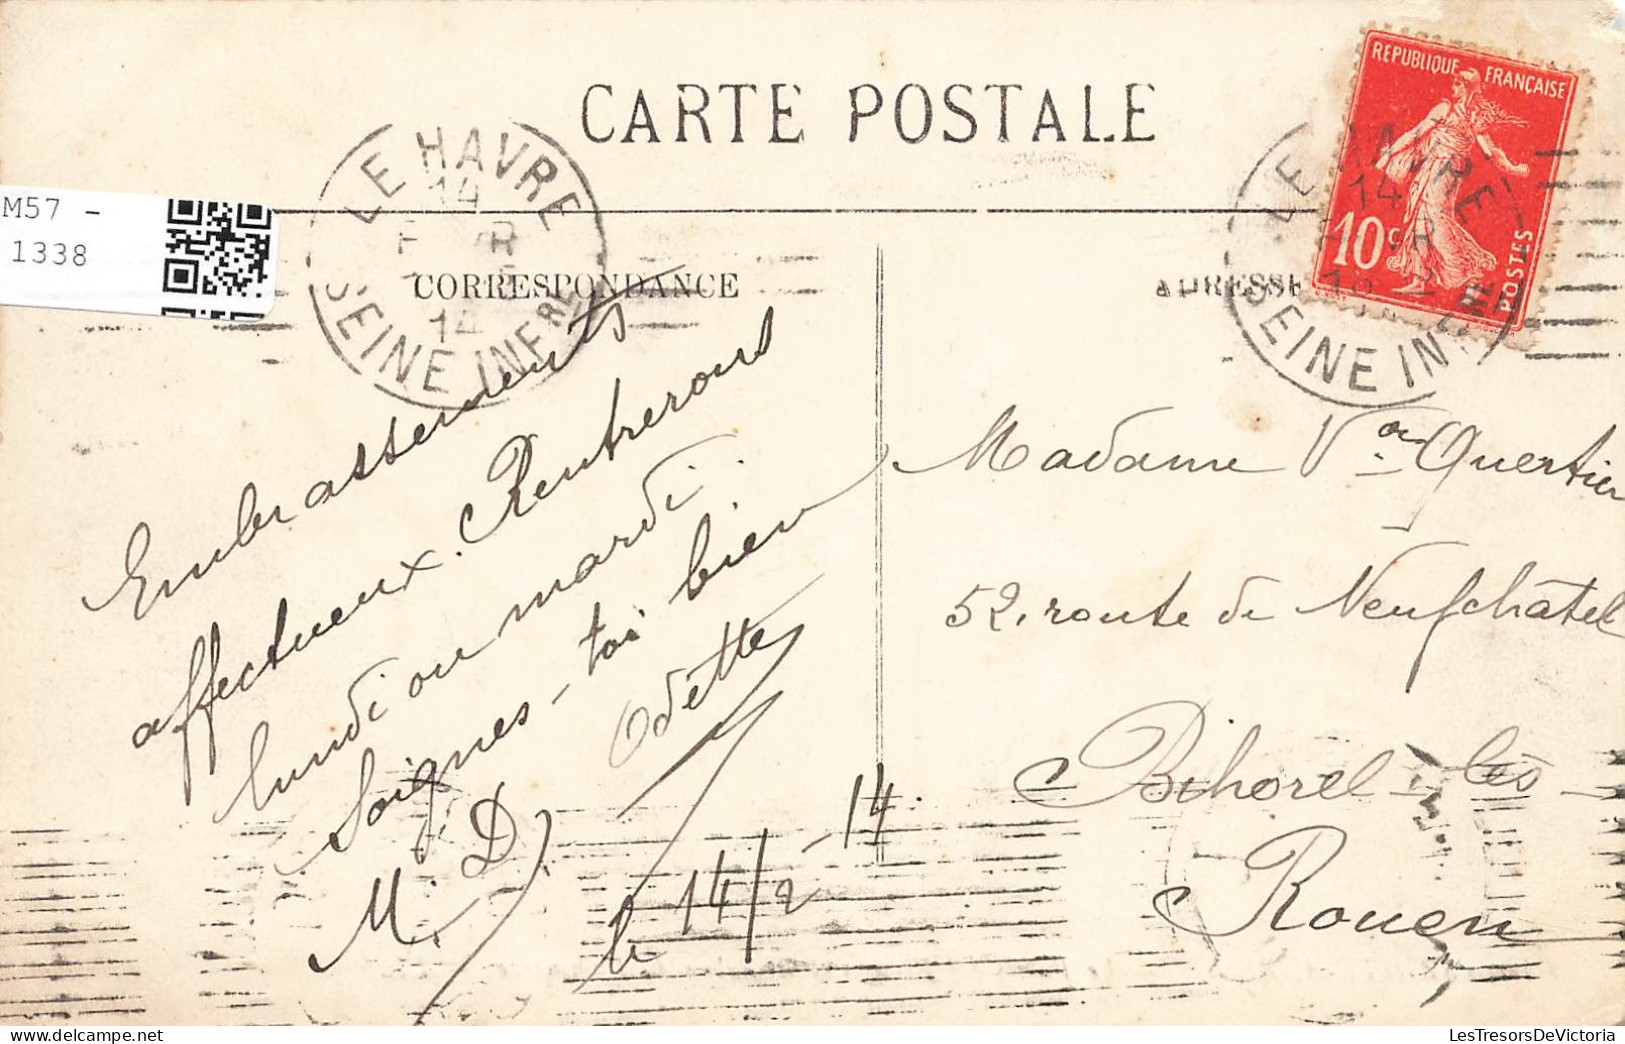 CARTE POSTALE
REPUBLIQUE FRANÇAISE
10c
POSTES
LE HAVRE
14
14
SEINE INFRE
LE HAVRE
14
SEINE INF
M57 -
1338
CORRESPONDANCE
ADRESSE
Embrassements
affectueux. Rentrerons
lundi ou mardi.
Soignes-toi bien
Odette
M. D.
le 14/2-14.
Madame Quertier
52, route de Neufchâtel
Bihorel-lès-
Rouen
LesTresorsDeVictoria.com